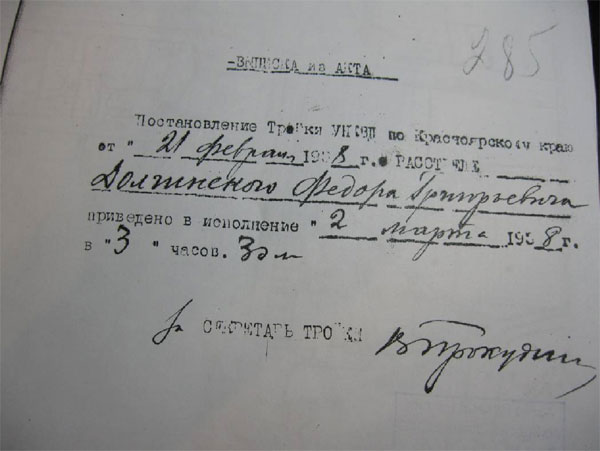 285
ВЫПИСКА из АКТА
Постановление Тройки УНКВД по Красноярскому краю
от " 21 февраля 1938 г. о РАССТРЕЛЕ
Долгинского Федора Григорьевича
приведено в исполнение " 2 марта 1938 г.
в "3" часов. 30 м
за СЕКРЕТАРЬ ТРОЙКИ